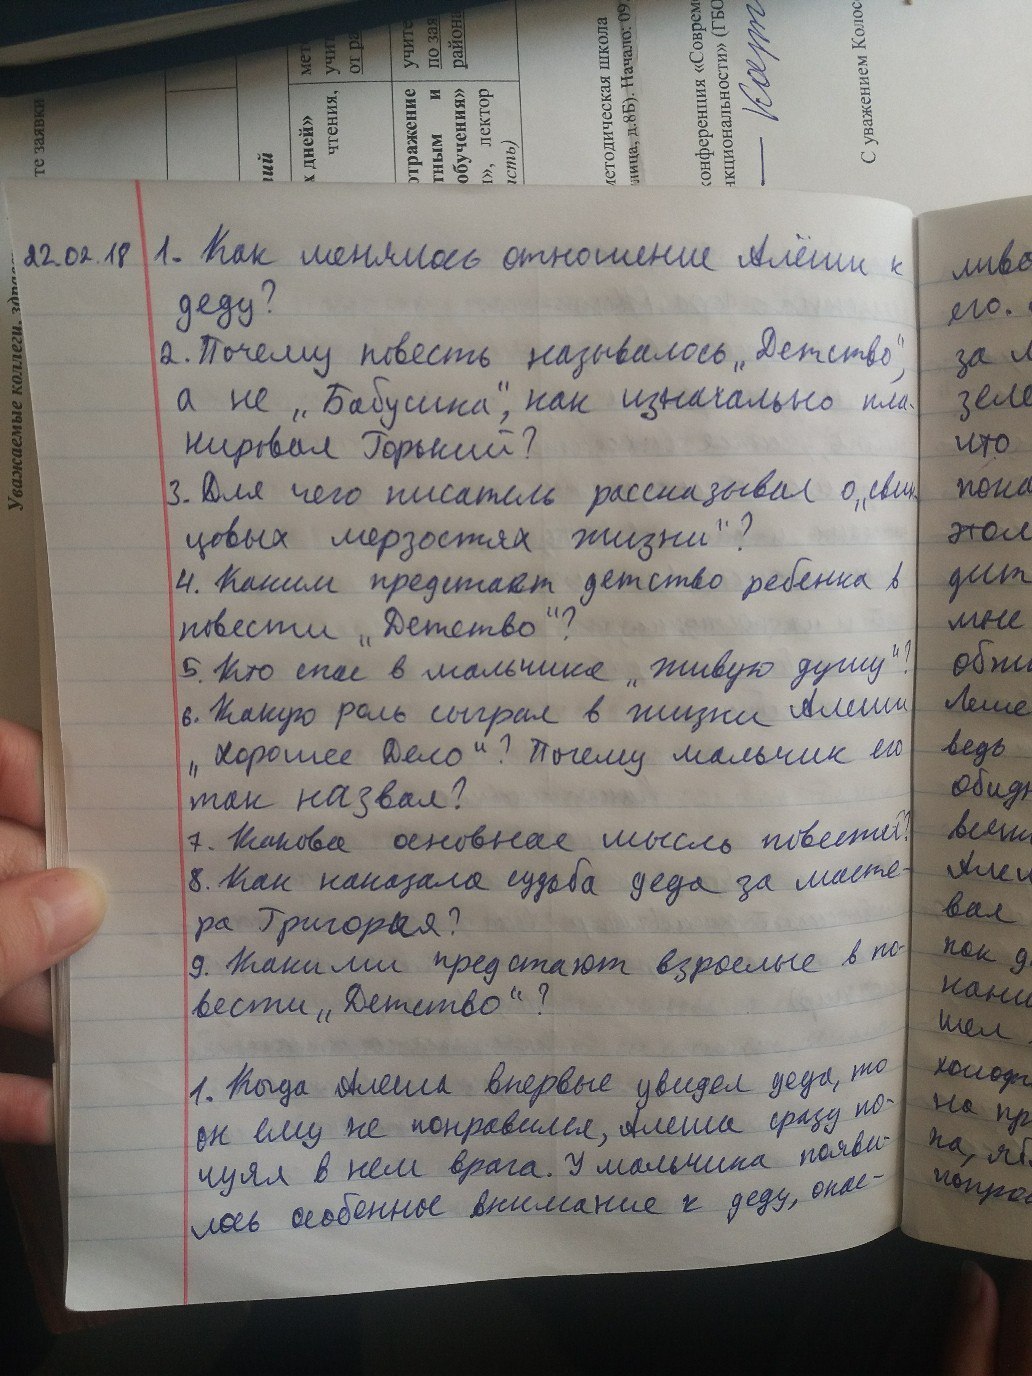 те заявки
Уважаемые коллеги, здрав
тий
х дней»
чтения,
мет
учит
от ра
отражение
тным и
обучения»
», лектор
сть)
учите
по зая
район
методическая школа
лица, д.8Б). Начало: 09
конференция «Совреме
нкциональности» (ГБО
С уважением Колос
22.02.18
1. Как менялось отношение Алёши к
деду?
2. Почему повесть называлось „Детство",
а не „Бабушка", как изначально пла-
нировал Горький?
3. Для чего писатель рассказывал о „свин-
цовых мерзостях жизни"?
4. Каким предстает детство ребенка в
повести „Детство"?
5. Кто спас в мальчике „живую душу"?
6. Какую роль сыграл в жизни Алеши
„Хорошее Дело"? Почему мальчик его
так назвал?
7. Какова основная мысль повестей?
8. Как наказала судьба деда за масте-
ра Григория?
9. Какими предстают взрослые в по-
вести „Детство"?
1. Когда Алеша впервые увидел деда, то
он ему не понравился, Алеша сразу по-
чуял в нем врага. У мальчика появи-
лось особенное внимание к деду, опас-
ливо
его.
за
зеле
что
пока
этом
дит
мне
обжи
Леше
ведь
обидн
вести
Алеш
вал
пок д
нани
шел
холодн
на пр
па, яб
попрос